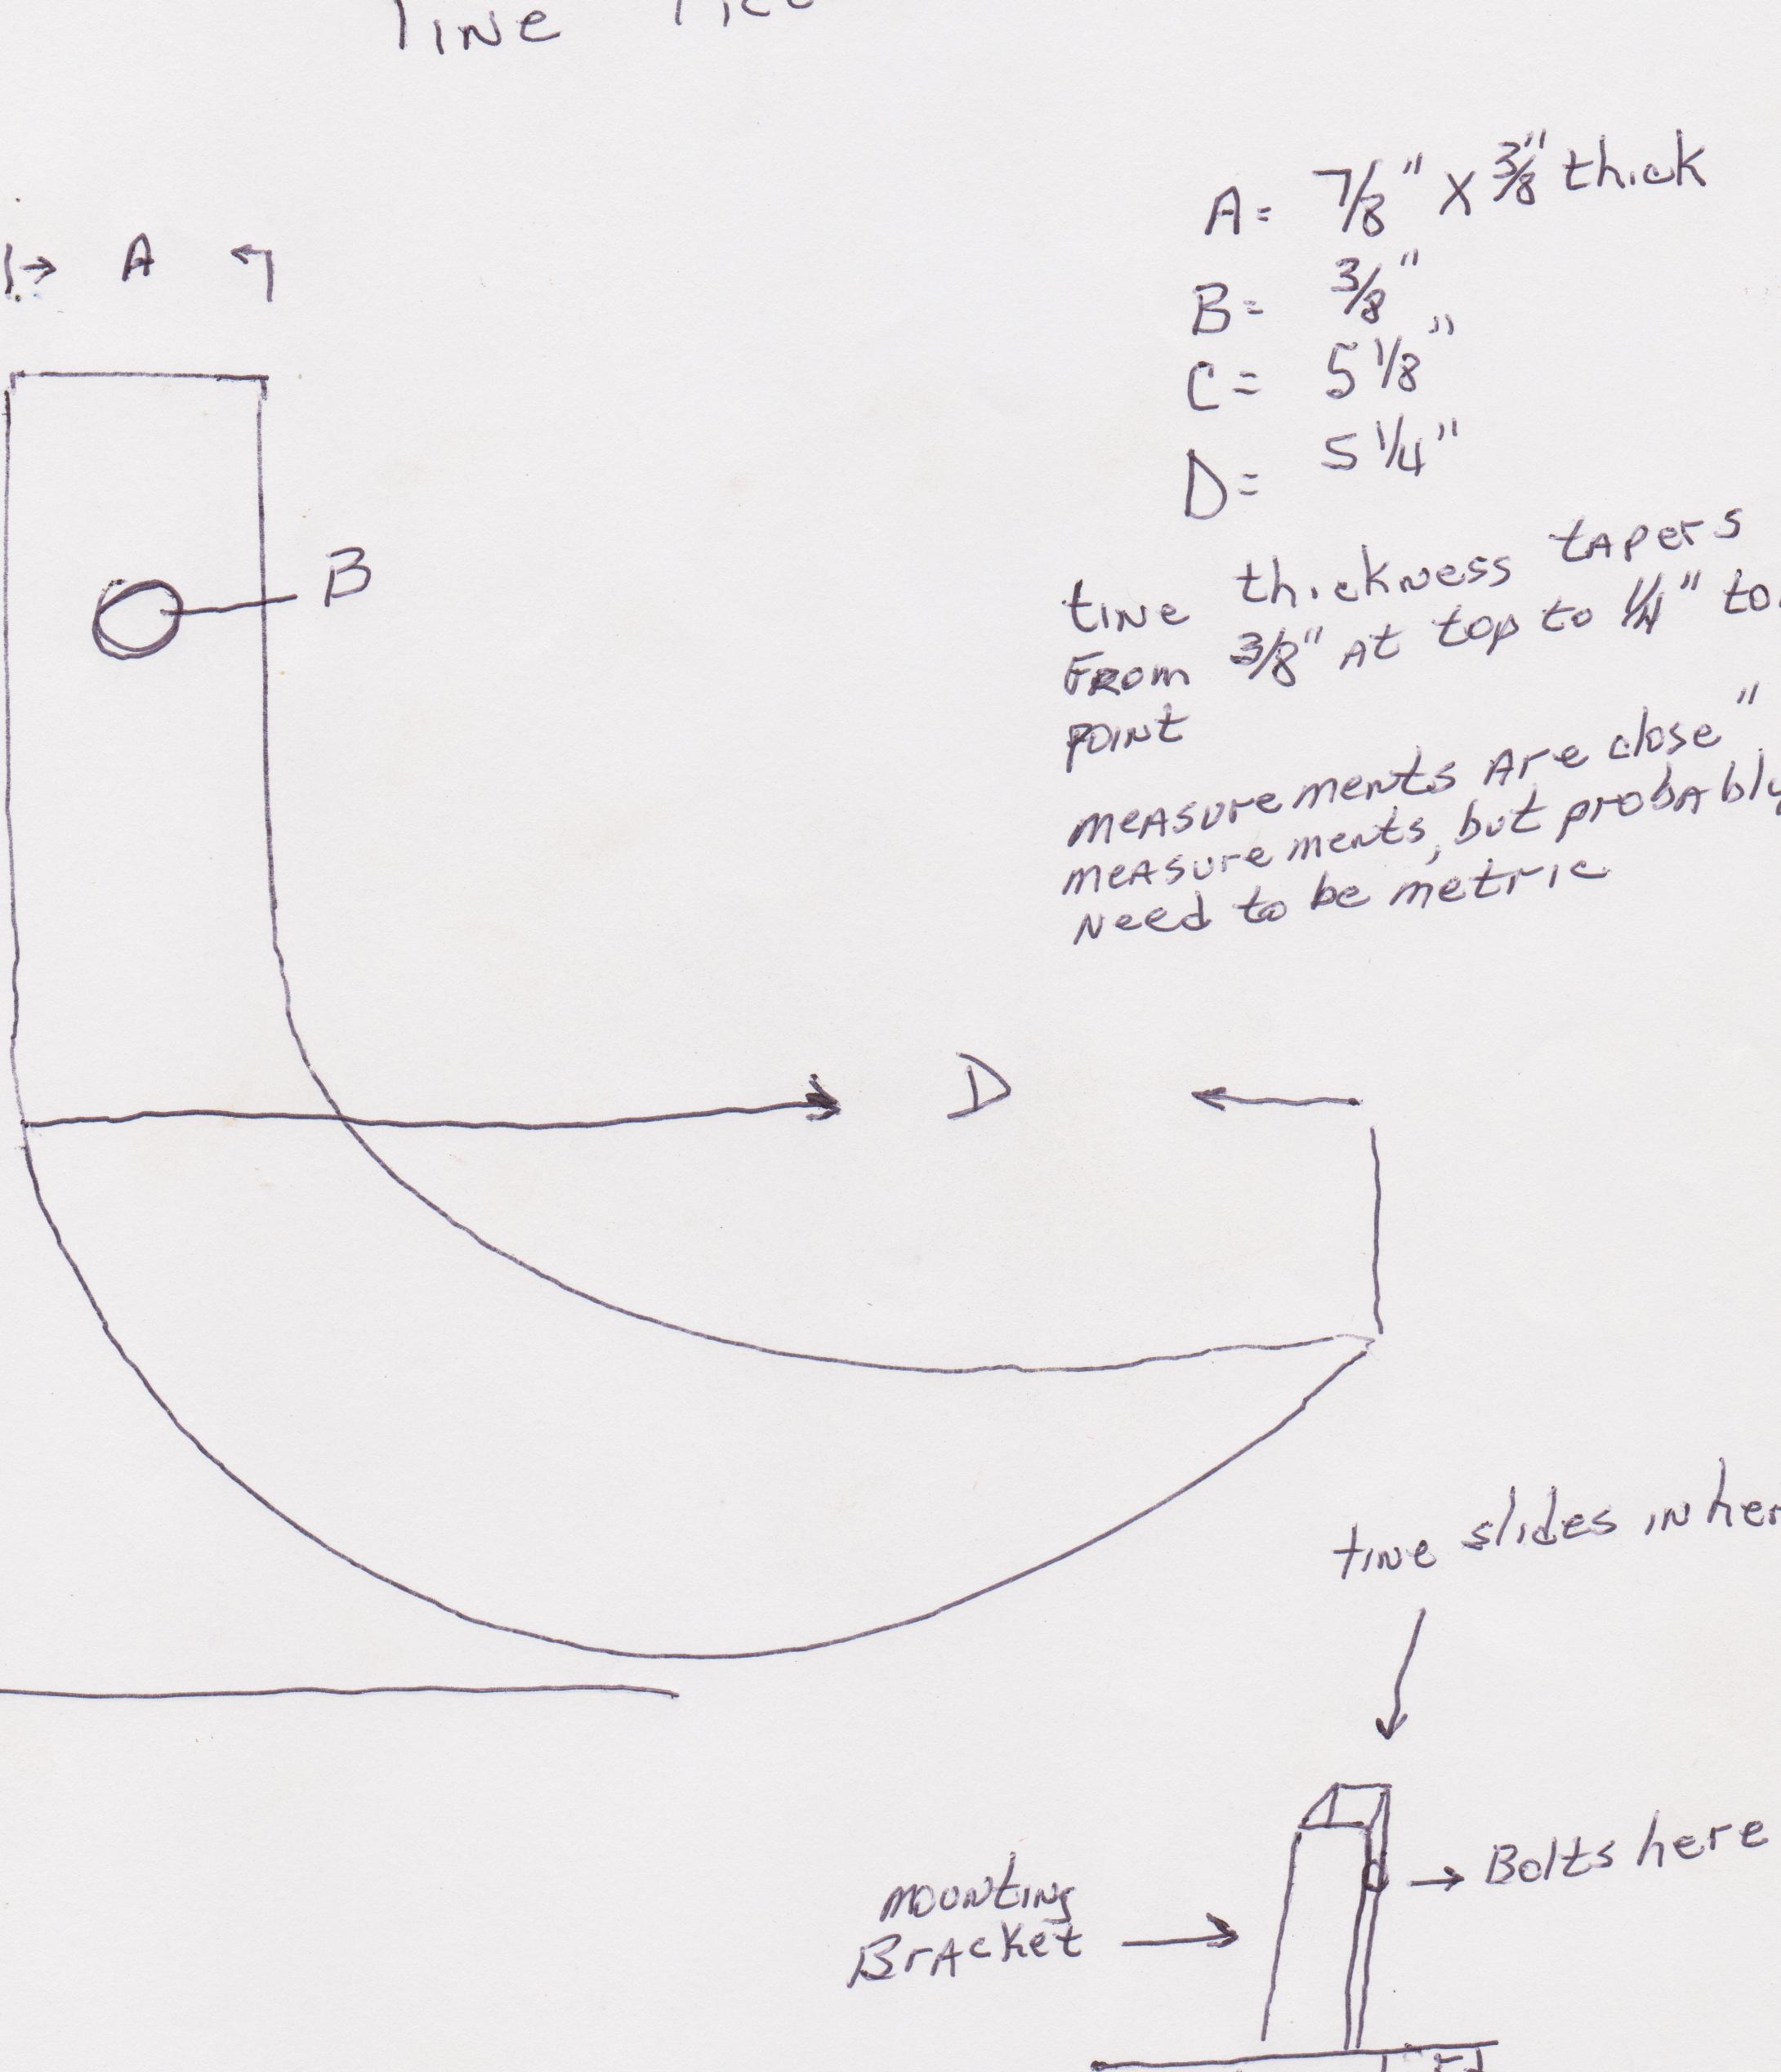 TINE
A
A= 7/8" X 3/8" thick
B= 3/8"
C= 5 1/8"
D= 5 1/4"
B
tine thickness tapers
From 3/8" at top to 1/4"
point
measurements are close"
measurements, but probably
need to be metric
D
tine slides in
Bolts here
mounting
Bracket